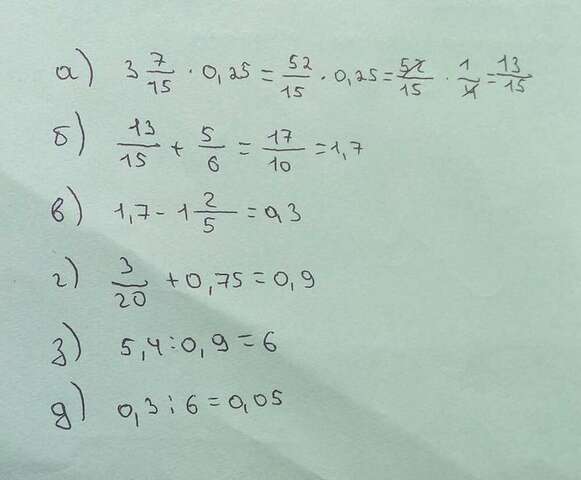 а) 3 7/15 · 0,25 = 52/15 · 0,25 = 52/15 · 1/4 = 13/15
б) 13/15 + 5/6 = 17/10 = 1,7
в) 1,7 - 1 2/5 = 0,3
г) 3/20 + 0,75 = 0,9
з) 5,4 : 0,9 = 6
д) 0,3 : 6 = 0,05